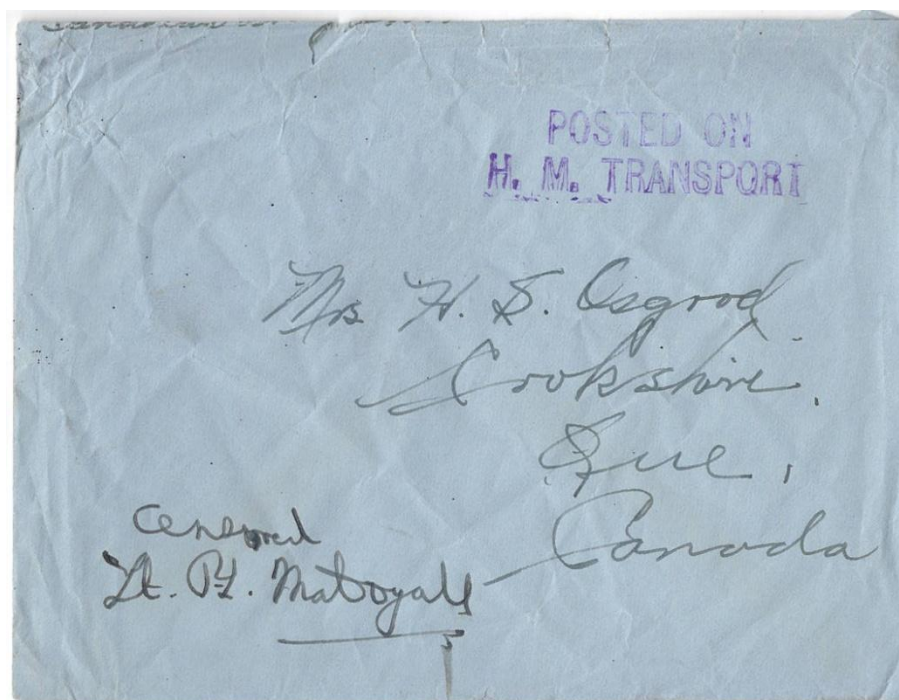 POSTED ON
H. M. TRANSPORT
Mrs H. S. Osgood
Cookshire.
Que,
Canada
Censored
Lt.